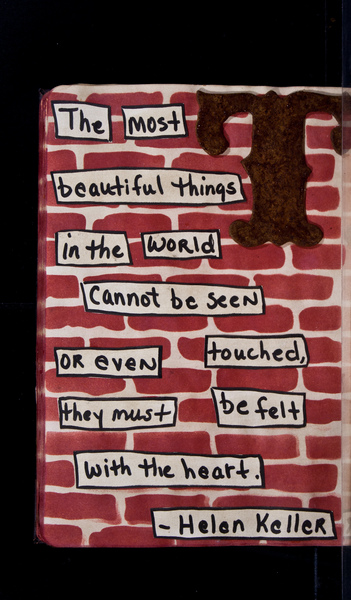 T
The most
beautiful things
in the WORLD
Cannot be seen
OR even touched,
they must be felt
with the heart.
- Helen Keller